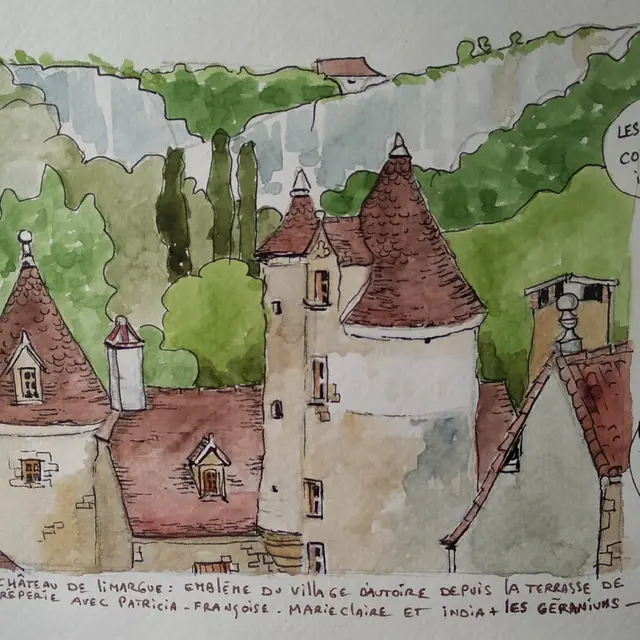 LES
CO
CHÂTEAU DE LIMARGUE : EMBLÈME DU VILLAGE D'AUTOIRE DEPUIS LA TERRASSE DE
RÊPERIE AVEC PATRICIA - FRANÇOISE - MARIECLAIRE ET INDIA + LES GÉRANIUMS —